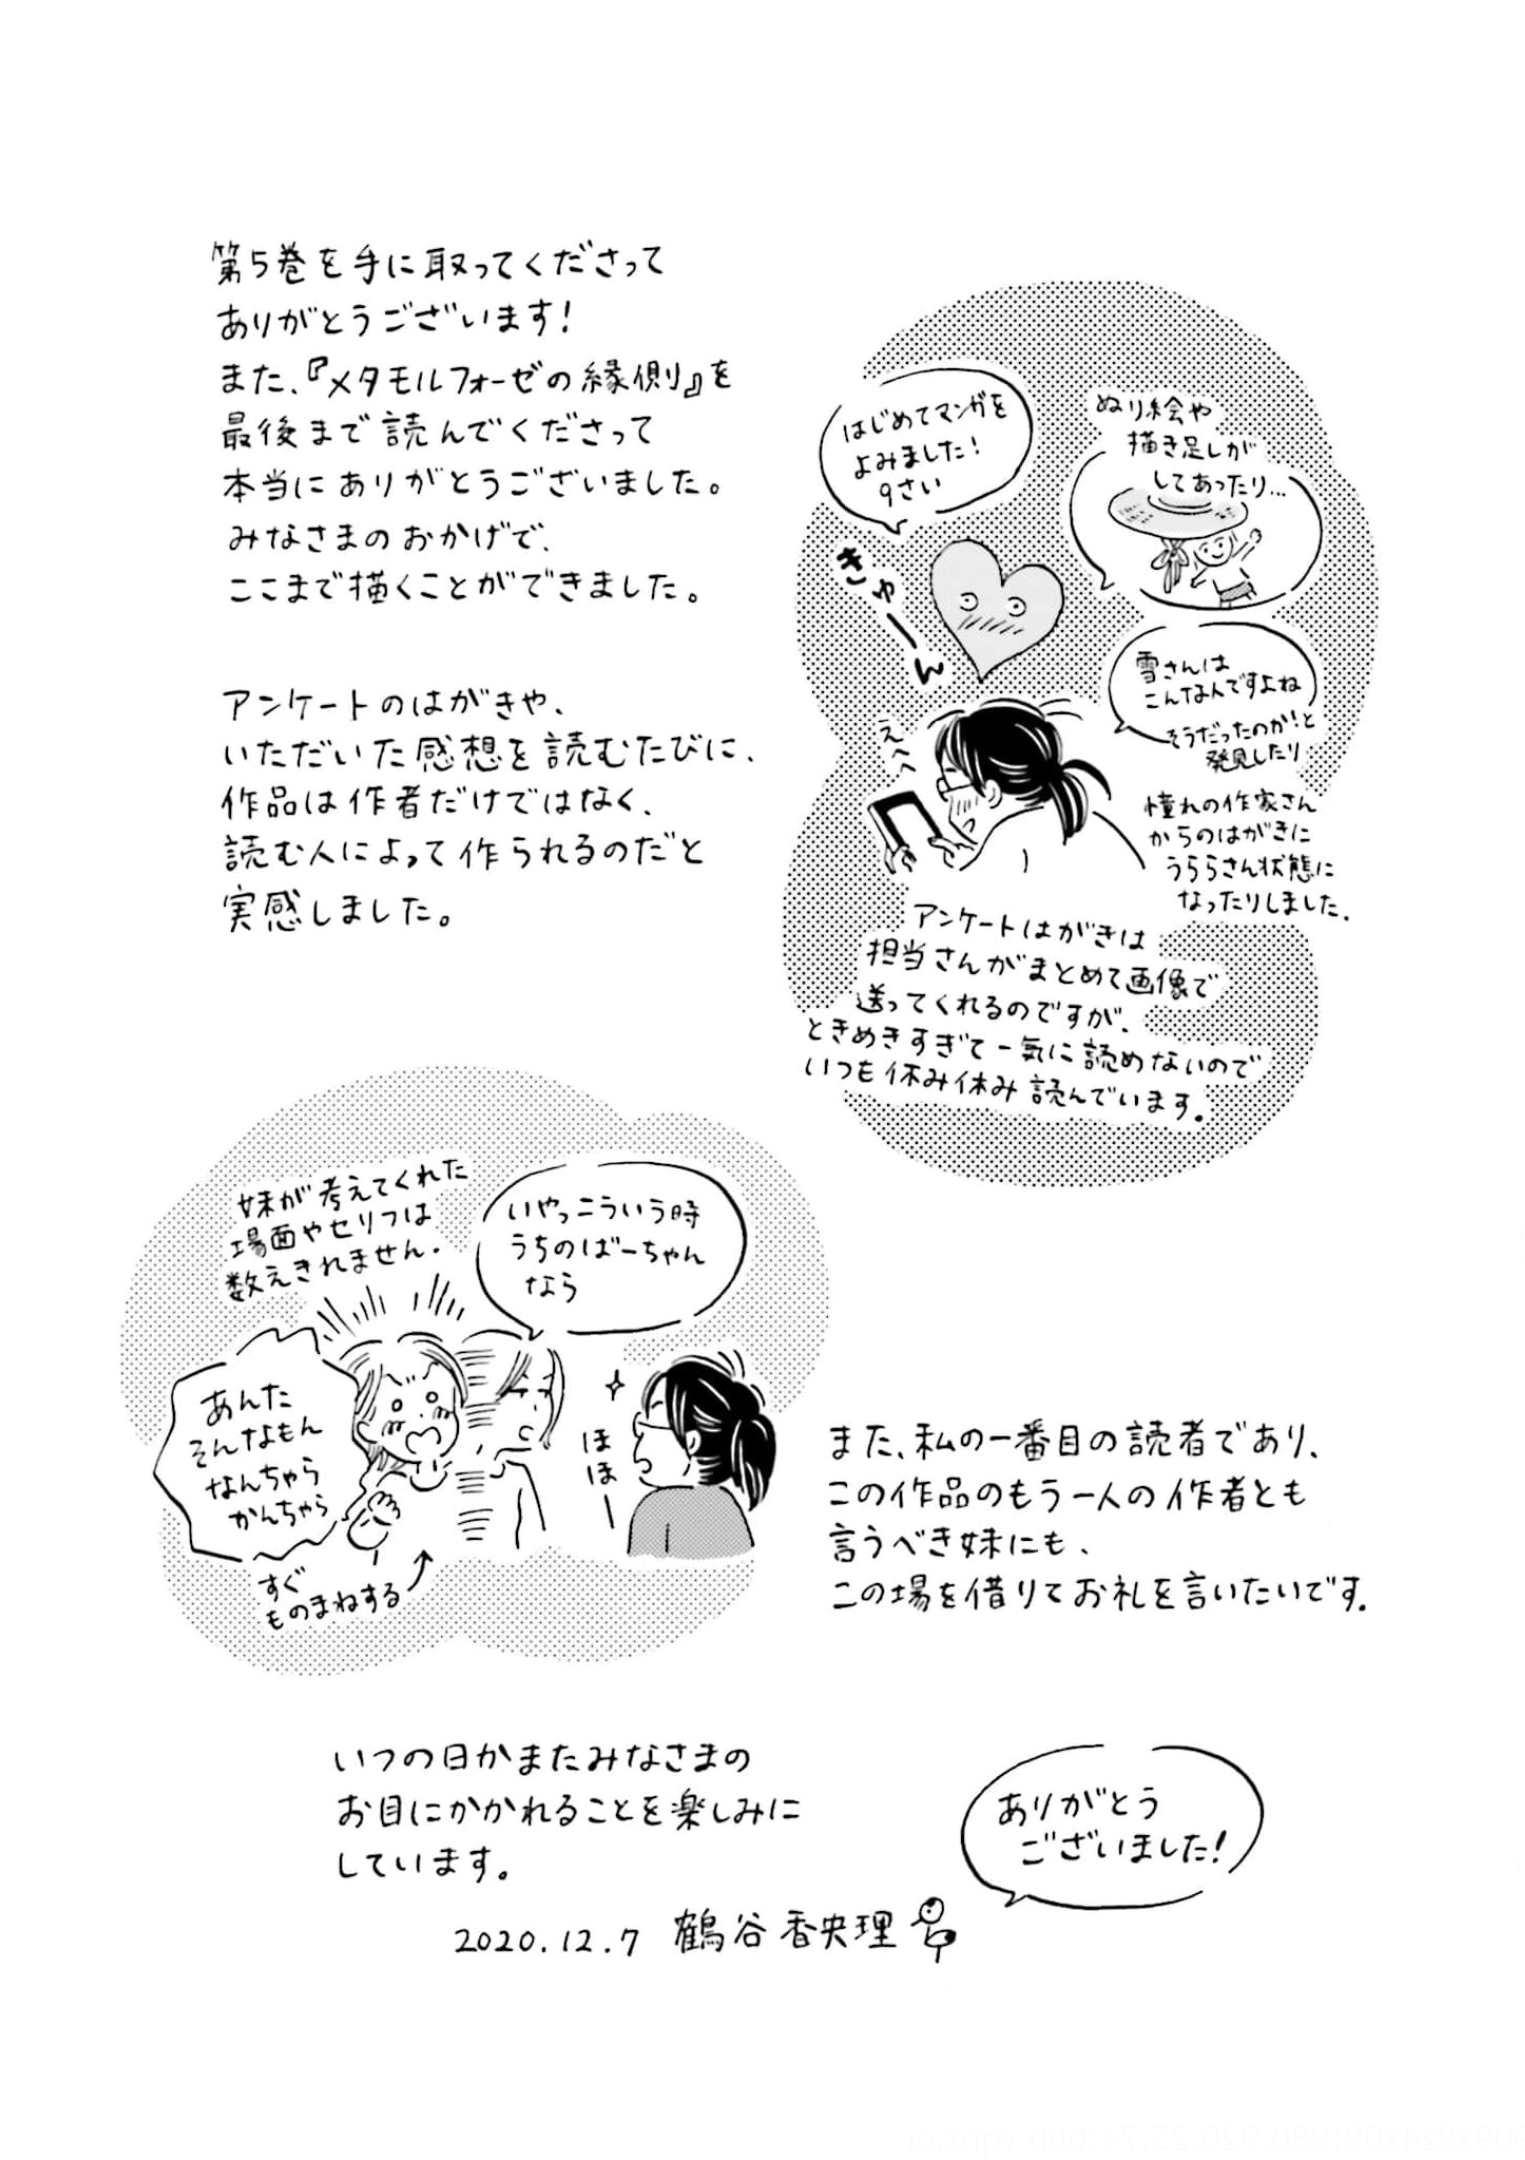 第5巻を手に取ってくださって
ありがとうございます!
また、『メタモルフォーゼの縁側』を
最後まで読んでくださって
本当にありがとうございました。
みなさまのおかげで、
ここまで描くことができました。
アンケートのはがきや、
いただいた感想を読むたびに、
作品は作者だけではなく、
読む人によって作られるのだと
実感しました。
はじめてマンガを
よみました!
9さい
ぬり絵や
描き足しが
してあったり…
きゅーん
雪さんは
こんな人ですよね
そうだったのか!と
発見したり
えへへ
憧れの作家さん
からのはがきに
うららさん状態に
なったりしました。
アンケートはがきは
担当さんがまとめて画像で
送ってくれるのですが、
ときめきすぎて一気に読めないので
いつも休み休み読んでいます。
妹が考えてくれた
場面やセリフは
数えきれません。
いやっこういう時
うちのばーちゃん
なら
あんた
そんなもん
なんちゃら
かんちゃら
ほほー
すぐ
ものまねする
また、私の一番目の読者であり、
この作品のもう一人の作者とも
言うべき妹にも、
この場を借りてお礼を言いたいです。
いつの日かまたみなさまの
お目にかかれることを楽しみに
しています。
ありがとう
ございました!
2020.12.7 鶴谷香央理